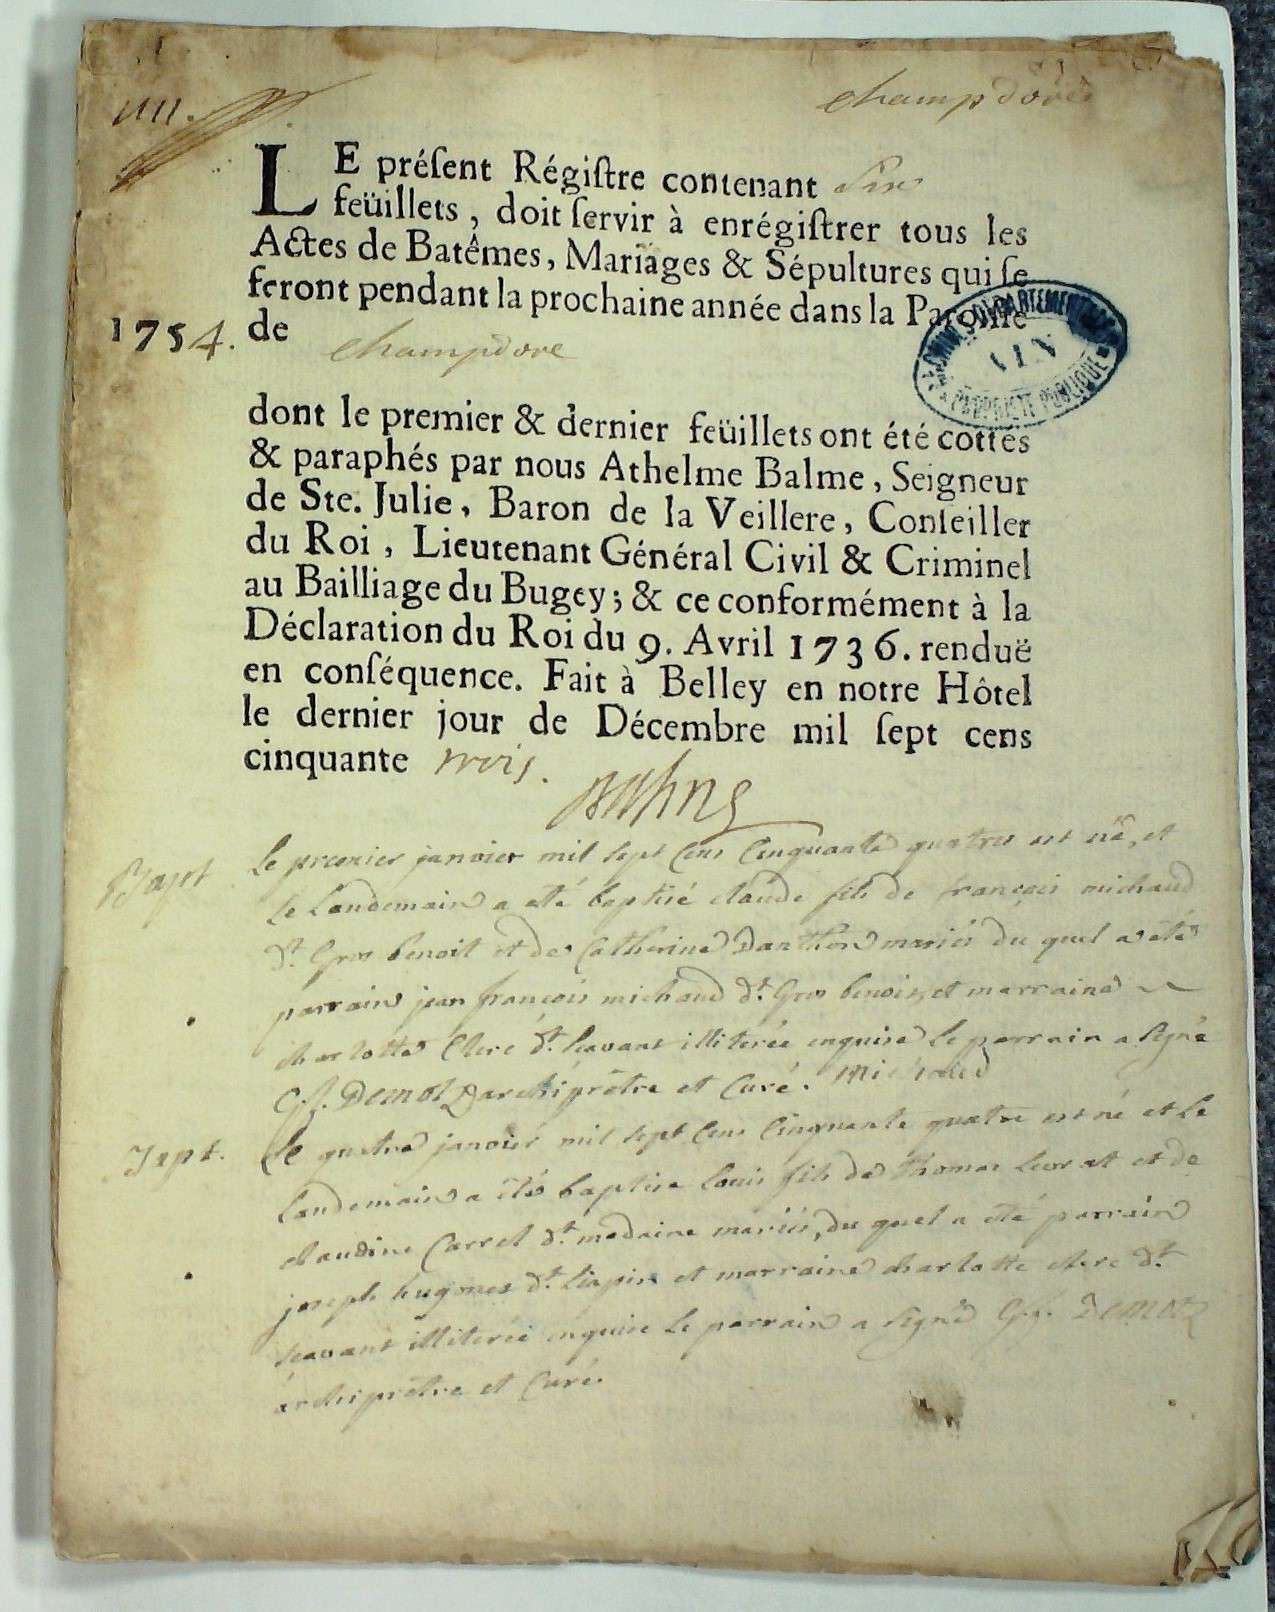 champdore
LE préſent Régiſtre contenant Six
feüillets, doit ſervir à enrégiſtrer tous les
Actes de Batêmes, Mariages & Sépultures qui ſe
feront pendant la prochaine année dans la Paroiſſe
1754. de champdore
ARCHIVES DÉPARTEMENTALES
AIN
PROPRIÉTÉ PUBLIQUE
dont le premier & dernier feüillets ont été cottés
& paraphés par nous Athelme Balme, Seigneur
de Ste. Julie, Baron de la Veillere, Conſeiller
du Roi, Lieutenant Général Civil & Criminel
au Bailliage du Bugey; & ce conformément à la
Déclaration du Roi du 9. Avril 1736. renduë
en conſéquence. Fait à Belley en notre Hôtel
le dernier jour de Décembre mil ſept cens
cinquante trois.
Bapt Le premier janvier mil sept Cens Cinquante quatre est né, et
le Landemain a été baptisé claude fils de françois michaud
dt. Gros benoit et de Catherine Danthon mariés du quel a été
parrain jean françois michaud dt. Gros benoit, et marraine
charlotte Clerc dt. Savant illiterée enquise le parrain a signé
G. J. Demotz archiprêtre et Curé. Michaud
Bapt. Le quatre janvier mil sept Cens Cinquante quatre est né et le
Landemain a été baptisé Louis fils de Thomas Levrat et de
claudine Carrel dt. madaine mariés, du quel a été parrain
joseph hugues dt. Liapin et marraine charlotte clerc dt.
Savant illiterée enquise le parrain a signé G. J. Demotz
archiprêtre et Curé.